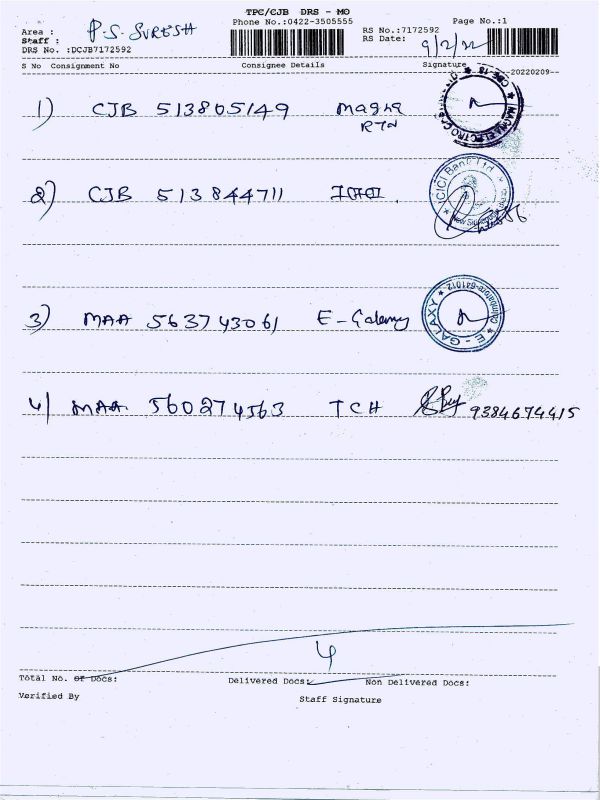 TPC/CJB DRS - MO
Phone No.:0422-3505555
Page No.:1
Area :
Staff :
P.S. SURESH
DRS No. :DCJB7172592
RS No.:7172592
RS Date:
9/2/22
S No Consignment No Consignee Details Signature
20220209
1) CJB 513805149 Magna
RTN
2) CJB 513844711 ICICI .
ICICI Bank Ltd
3) MAA 563743061 E-Galaxy
Coimbatore-641012
★ E - GALAXY ★
4) MAA 560274563 TCH 9384674415
4
Total No. of Docs: Delivered Docs: Non Delivered Docs:
Verified By Staff Signature